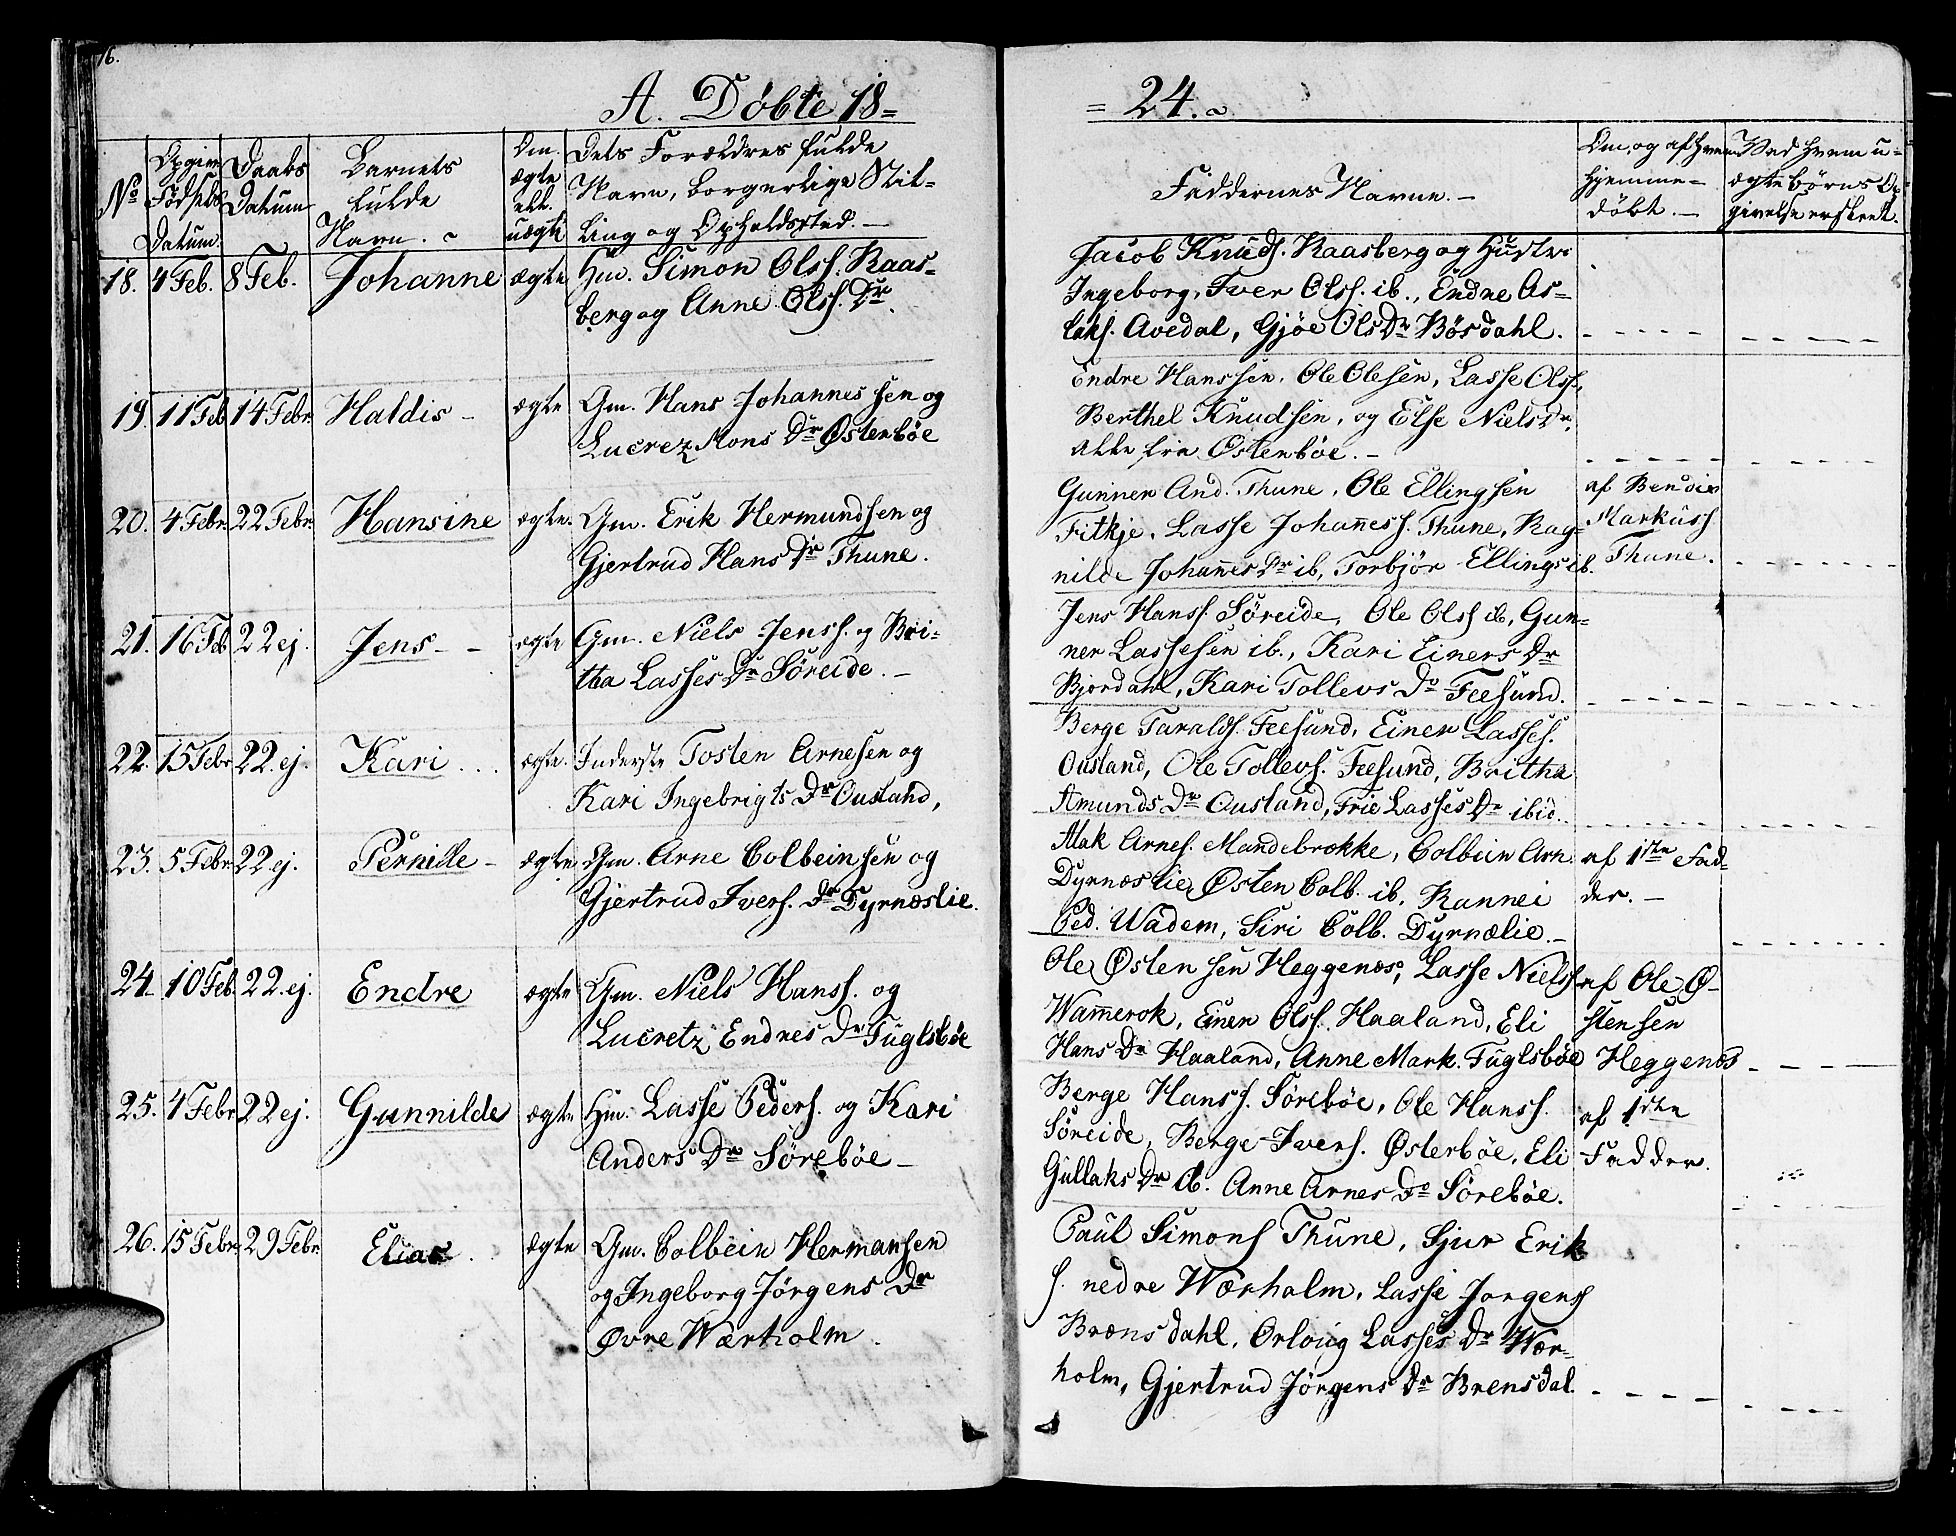 16.
A. Döbte 18=
= 24. ~
No
Opgiv.
Födsels
Datum.
Daabs
Datum
Barnets
fulde
Navn. ~
Om
ægte
ell.
uægte
Dets Forældres fulde
Navn, borgerlige Stil-
ling og Opholdssted. –
Faddernes Navne. –
Om, og af hvem
hjemme-
döbt. –
Ved hvem u-
ægte börns Op-
givelse er skeet.
18. 4 Feb. 8 Feb. Johanne ægte Hm. Simon Olss. Raas-
berg og Anne Olss. Dr.
Jacob Knuds. Raasberg og Hustr:
Ingeborg, Iver Olss. ib., Endne As-
laks. Avedal, Gjöe Ols Dr Bösdahl.
19. 11 Feb 14 Febr. Haldis – ægte Gm. Hans Johannessen og
Lucrez Mons Dr Østerböe
Endre Hanssen, Ole Olesen, Lasse Olss.
Berthel Knudsen, og Else Niels Dr,
alle fra Østenböe. –
20. 4 Febr. 22 Febr. Hansine ægte. Gm. Erik Hermundsen og
Gjertrud Hans Dr Thune.
Gunner And. Thune, Ole Ellingsen
Fitkje, Lasse Johañess. Thune, Rag-
nilde Johañes Dr ib, Torbjör Ellings ib.
af
Markuss
Thune.
21. 16 Feb 22 ej. Jens – – ægte Gm. Niels Jenss. og Bri-
tha Lasses Dr Söreide. –
Jens Hanss. Söreide, Ole Olss ib, Gun-
ner Lassesen ib., Kari Einers Dr
Bjordahl, Kari Tollevs Dr Feesund.
22. 15 Febr 22. ej. Kari . . . ægte. Inderste Tosten Arnesen og
Kari Ingebrigts Dr Ousland,
Berge Taralds. Feesund, Einer Lasses.
Ousland, Ole Tollevs. Feesund, Britha
Amunds Dr Ousland, Frie Lasses Dr ibid.
23. 5 Febr 22 ej. Pernille – ægte Gm. Arne Colbeinsen og
Gjertrud Ivers. Dr Dyrnæslie.
Alak Arnes. Mandebrokke, Colbein Arn.
Dyrnæslie, Østen Colb. ib, Rannei
Ped. Wadem, Siri Colb. Dyrnælie. –
af 1ste Fad-
der. –
24 10 Feb. 22. ej. Endre ægte Gm. Niels Hanss. og
Lucretz Endres Dr Fuglsböe
Ole Østensen Heggenæs, Lasse Nielss
Wam̃erok, Einer Olss. Haaland, Eli
Hans Dr Haaland, Anne Mark. Fuglsböe
af Ole Ø-
stensen
Heggenæs
25. 4 Febr 22 ej. Gunnilde ægte Hm. Lasse Peders. og Kari
Anders Dr Söreböe –
Berge Hanss. Söreböe, Ole Hanss.
Söreide, Berge Ivers. Østerböe, Eli
Gullaks Dr ib. Anne Arnes Dr Söreböe.
af 1ste
Fadder.
26. 15 Febr. 29 Febr. Elias . ægte Gm. Colbein Hermansen
og Ingeborg Jörgens Dr
Øvre Wærholm.
Paul Simons Thune, Sjur Erik
s. nedre Wærholm, Lasse Jorgens
Brænsdahl, Orloug Lasses Dr Wær-
holm, Gjertrud Jörgens Dr Brensdal.